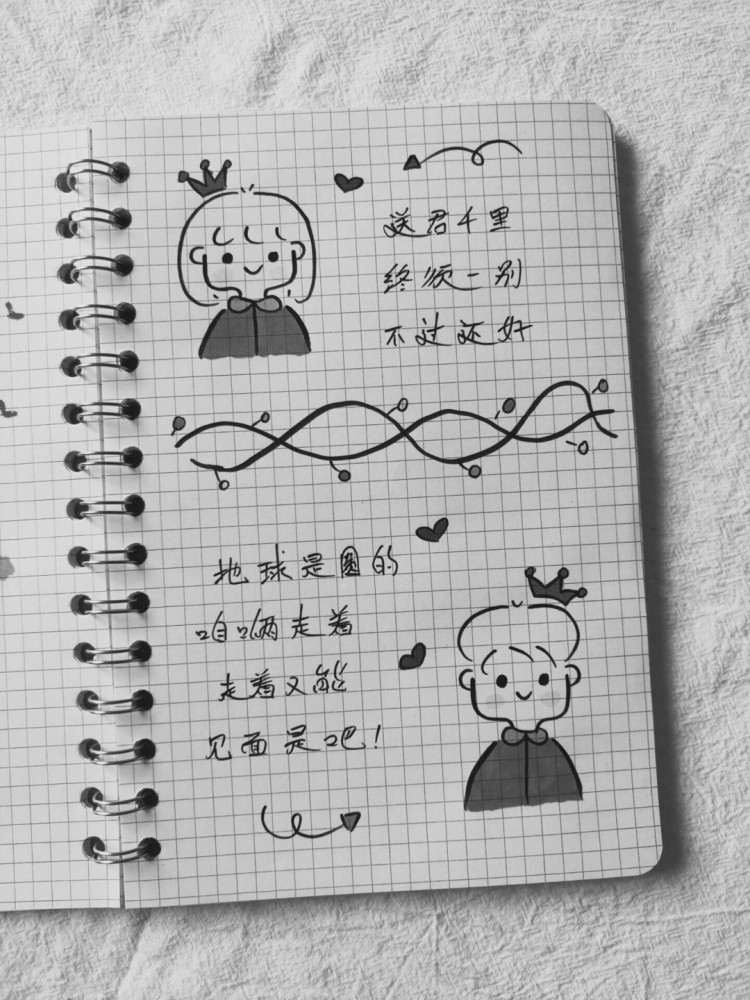 送君千里
终须一别
不过还好
地球是圆的
咱俩走着
走着又能
见面是吧!